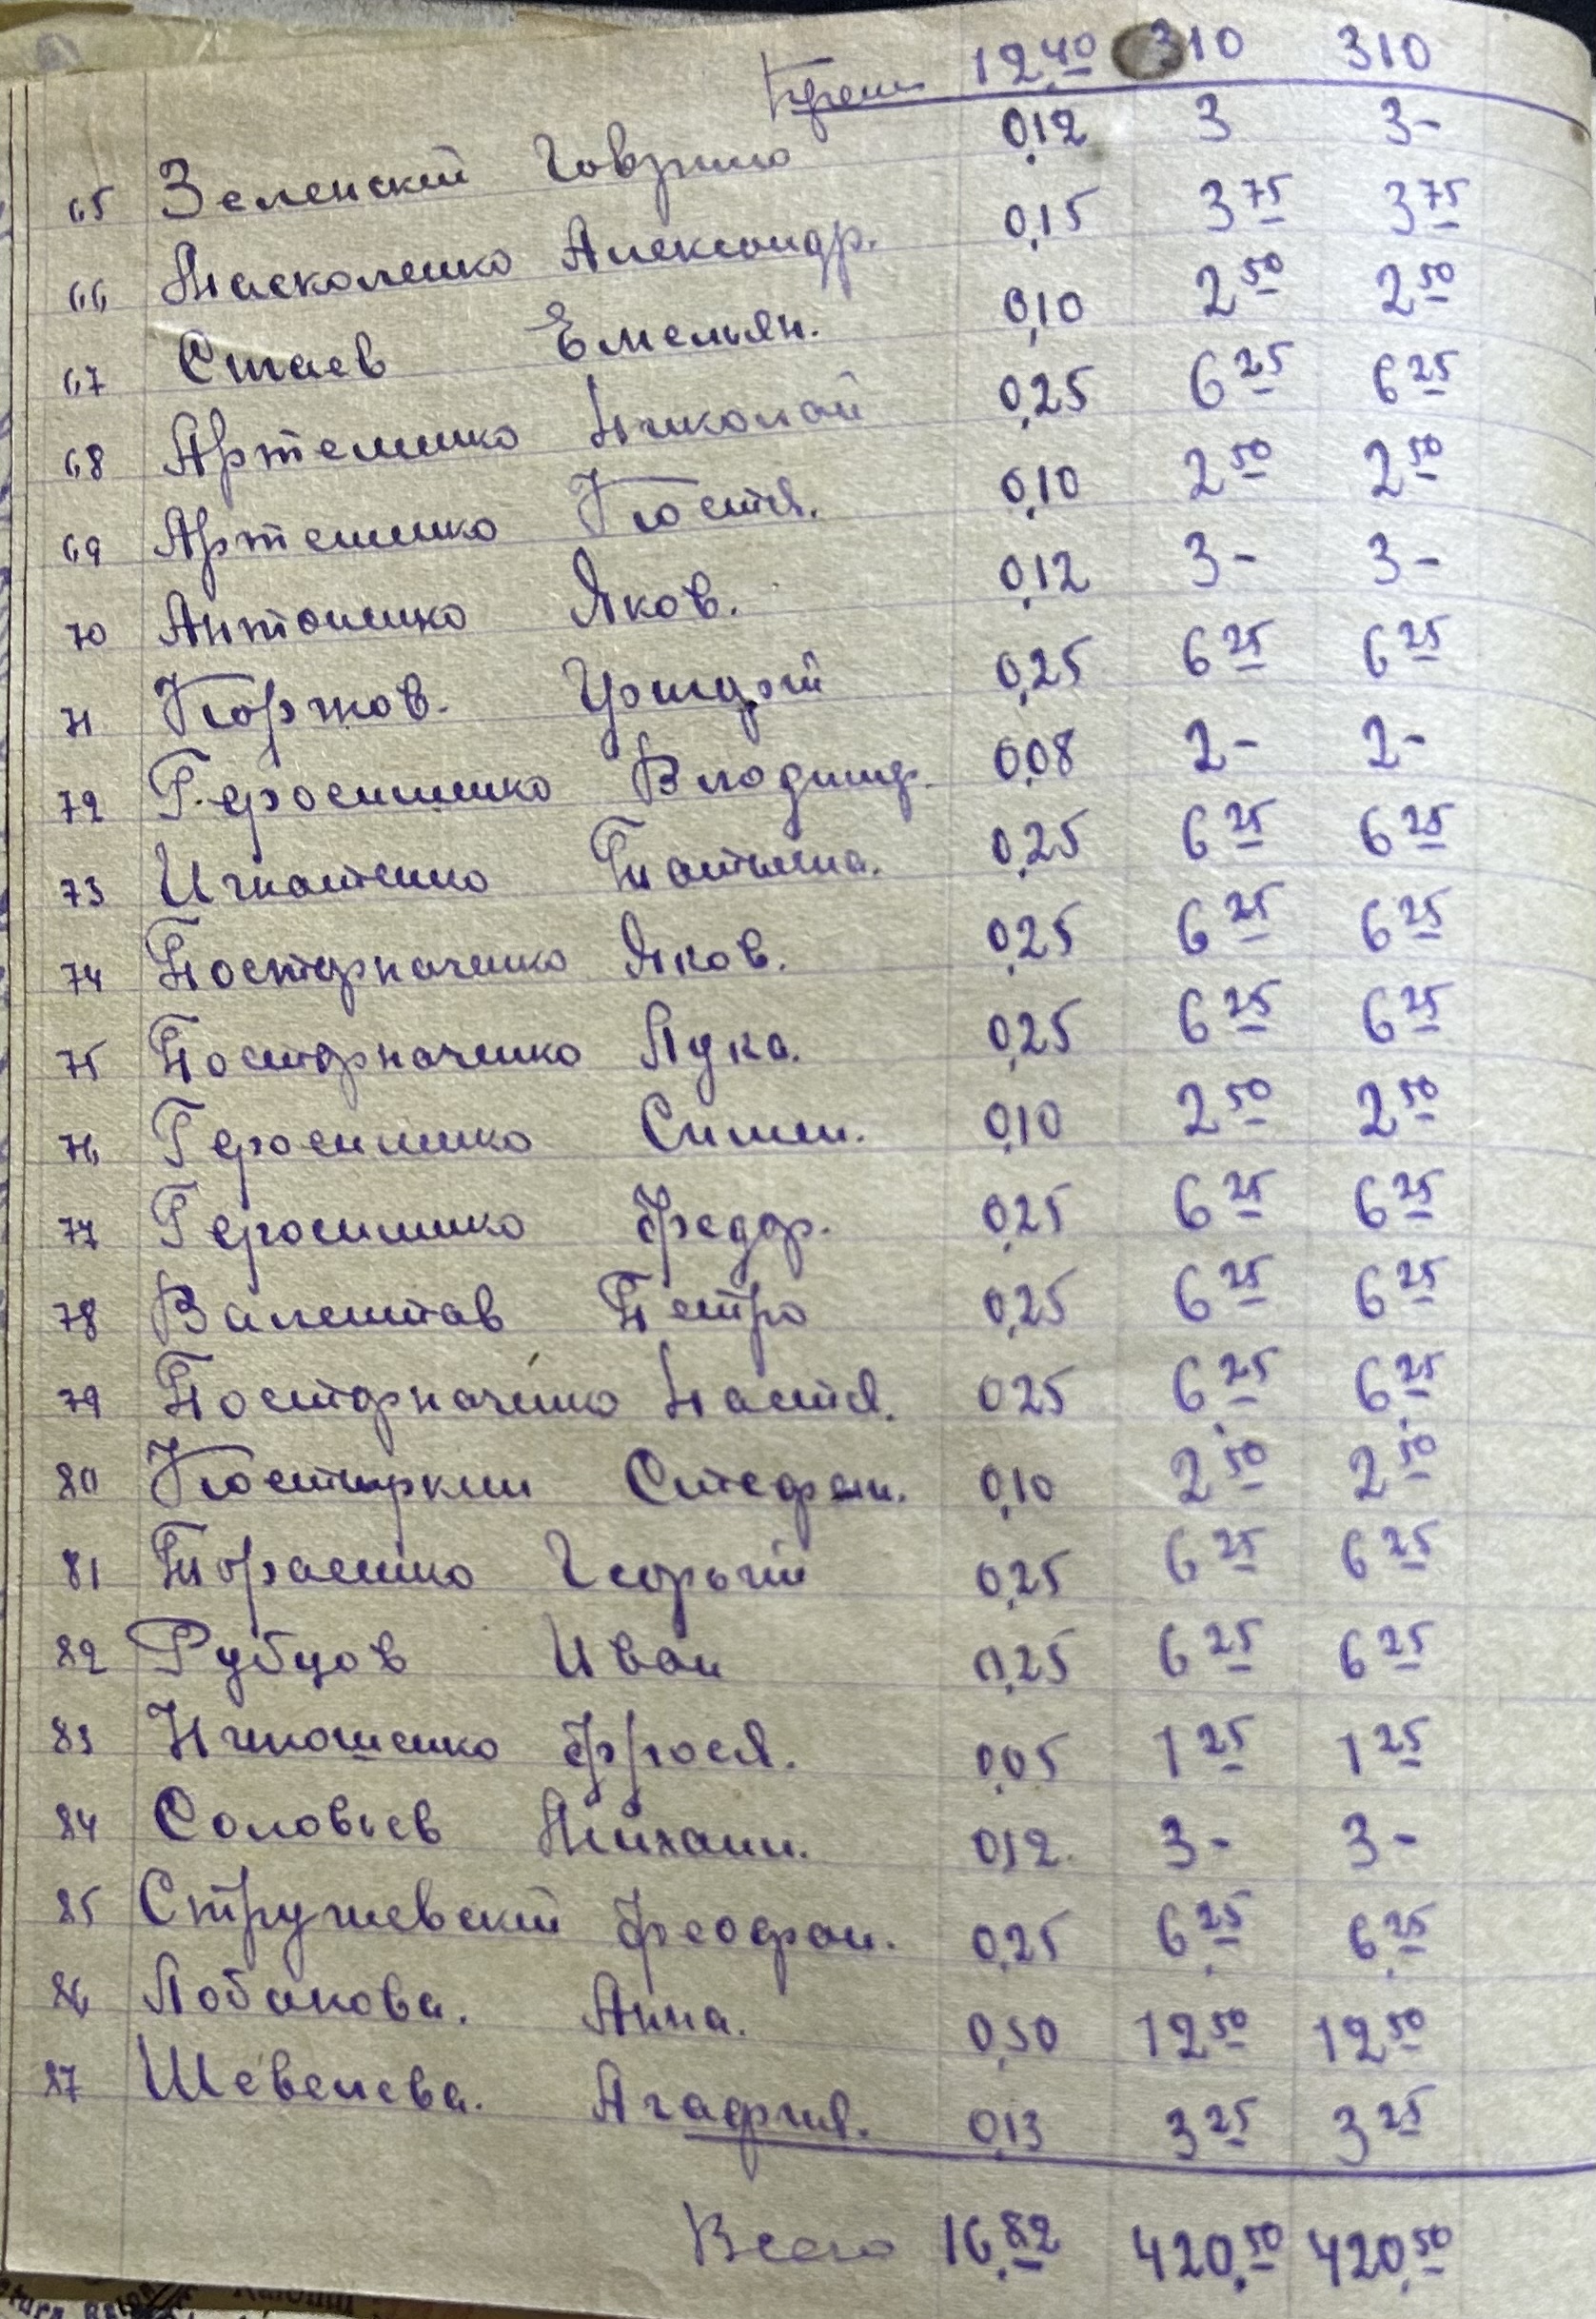 12,40 310 310
65 Зеленский Гаврило 0,12 3 3-
66 Масколенко Александр. 0,15 3 75 3 75
67 Стаев Емельян. 0,10 2 50 2 50
68 Артеменко Николай 0,25 6 25 6 25
69 Артеменко Костя. 0,10 2 50 2 50
70 Антоненко Яков. 0,12 3- 3-
71 Коржов. 0,25 6 25 6 25
72 Герасименко Владимир. 0,08 2- 2-
73 Игнатенко Татьяна. 0,25 6 25 6 25
74 Постэрначенко Яков. 0,25 6 25 6 25
75 Постэрначенко Лука. 0,25 6 25 6 25
76 Герасименко Симен. 0,10 2 50 2 50
77 Герасименко Федор. 0,25 6 25 6 25
78 Валентов Петро 0,25 6 25 6 25
79 Постэрначенко Настя. 0 25 6 25 6 25
80 Костыркин Стефан. 0,10 2 50 2 50
81 Тарасенко Георгий 0,25 6 25 6 25
82 Рубцов Иван 0,25 6 25 6 25
83 Никошенко Фрося. 0,05 1 25 1 25
84 Соловьев Михаил. 0,12 3- 3-
85 Стружевский Феофан. 0,25 6,25 6,25
86 Лобакова. Анна. 0,50 12 50 12 50
87 Шевелева. Агафия. 0,13 3 25 3 25
Всего 16,82 420,50 420,50